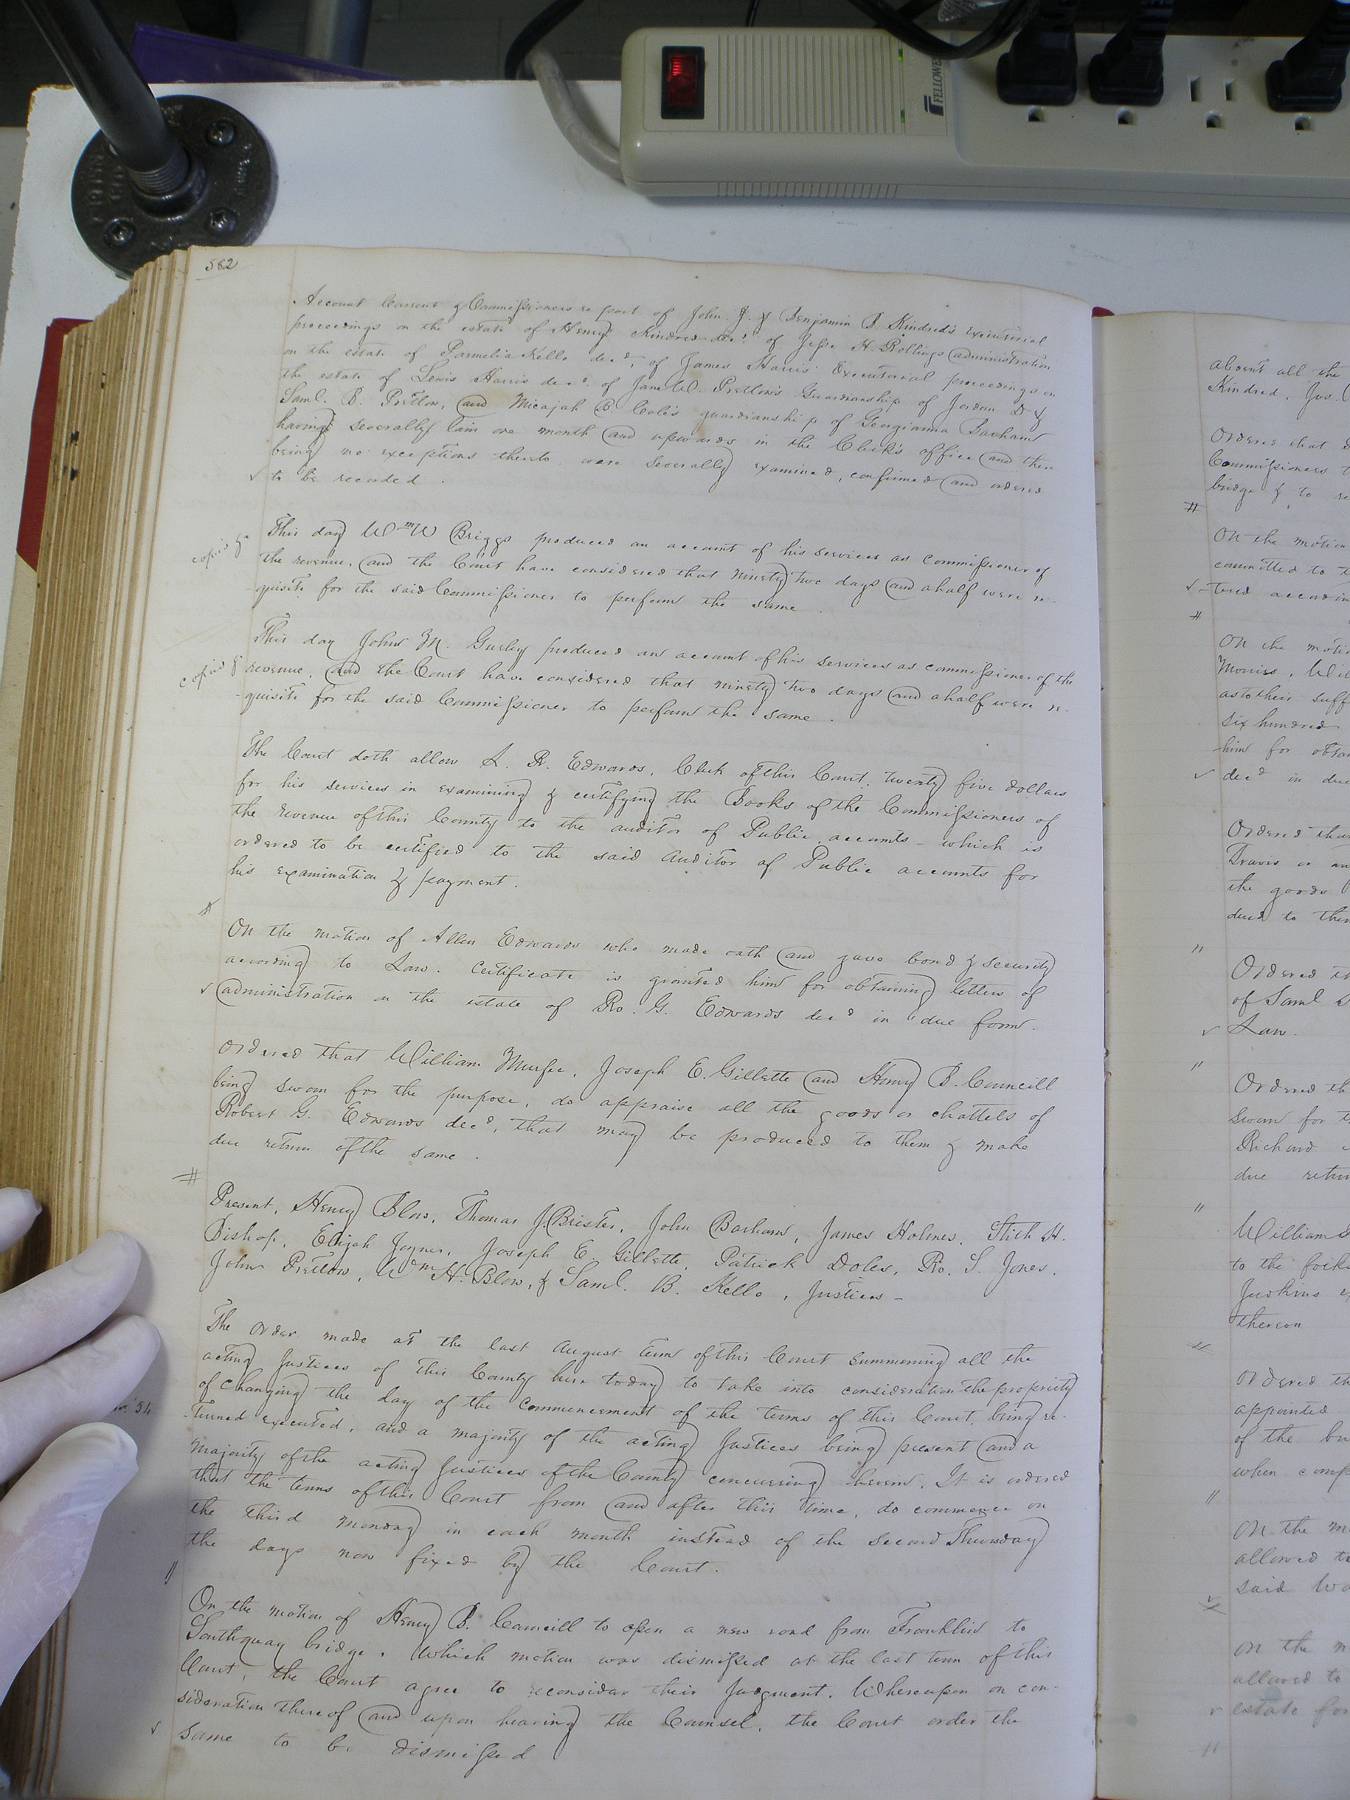 FELLOWES
382
Account Current & Commissioners report of John J. & Benjamin B. Kindred's executorial
proceedings on the estate of Henry Kindred dec.d of Jesse H. Rollings administration
on the estate of Parmelia Kello dec.d, of James Harris Executorial proceedings on
the estate of Lewis Harris dec.d of Jane W. Pretlow's Guardianship of Jordan D &
Saml. B. Pretlow, and Micajah B. Cobb's guardianship of Georgianna Barham
having severally lain one month and upwards in the Clerk's office and there
being no exceptions thereto were severally examined, confirmed and ordered
✓ to be recorded.
copied &
This day Wm W Briggs produced an account of his services as Commissioner of
the revenue, and the Court have considered that ninety two days and a half were re-
quisite for the said Commissioner to perform the same.
This day John M. Gurley produced an account of his services as commissioner of the
copied &
revenue, and the Court have considered that ninety two days and a half were re-
-quisite for the said Commissioner to perform the same.
The Court doth allow L. R. Edwards, Clerk of this Court, twenty five dollars
for his services in examining & certifying the Books of the Commissioners of
the revenue of this County to the auditor of Public accounts - which is
ordered to be certified to the said Auditor of Public accounts for
his examination & payment.
#
On the motion of Allen Edwards who made oath and gave bond & security
according to Law. Certificate is granted him for obtaining letters of
✓ administration on the estate of Ro. G. Edwards dec.d in due form.
Ordered that William Murfee, Joseph E. Gillette and Henry B. Councill
being sworn for the purpose, do appraise all the goods or chattels of
Robert G. Edwards dec.d, that may be produced to them & make
due return of the same.
#
Present, Henry Blow, Thomas J. Brister, John Barham, James Holmes, Stith H.
Bishop, Elijah Joyner, Joseph E. Gillette, Patrick Doles, Ro. S. Jones,
John Pretlow, Wm H. Blow, & Saml. B. Kello, Justices -
The order made at the last August term of this Court summoning all the
acting Justices of this County here today to take into consideration the propriety
of changing the day of the commencement of the terms of this Court, being re-
'54
turned executed, and a majority of the acting Justices being present and a
majority of the acting Justices of the County concurring herein. It is ordered
that the terms of this Court from and after this time, do commence on
the third monday in each month instead of the second Thursday
the days now fixed by the Court.
"
On the motion of Henry B. Councill to open a new road from Franklin to
Southquay bridge. Which motion was dismissed at the last term of this
Court, the Court agree to reconsider their Judgment. Whereupon on con-
sideration thereof and upon hearing the Counsel, the Court order the
✓ same to be dismissed
absent all the
Kindred, Jas.
Ordered that
Commissioners
bridge & to
#
On the motion
committed to
✓ -tered accordin
#
On the motio
Morriss, Wil
as to their suff
six hundred
him for obta
✓ dec.d in due
Ordered that
Travis or an
the goods
dec.d to them
"
Ordered th
of Saml
✓ Law.
"
Ordered th
sworn for t
Richard
due retur
"
William
to the fork
Judkins
thereon
"
Ordered th
appointed
of the bri
when comp
"
On the m
allowed t
said
On the m
allowed to
✓ estate for
"